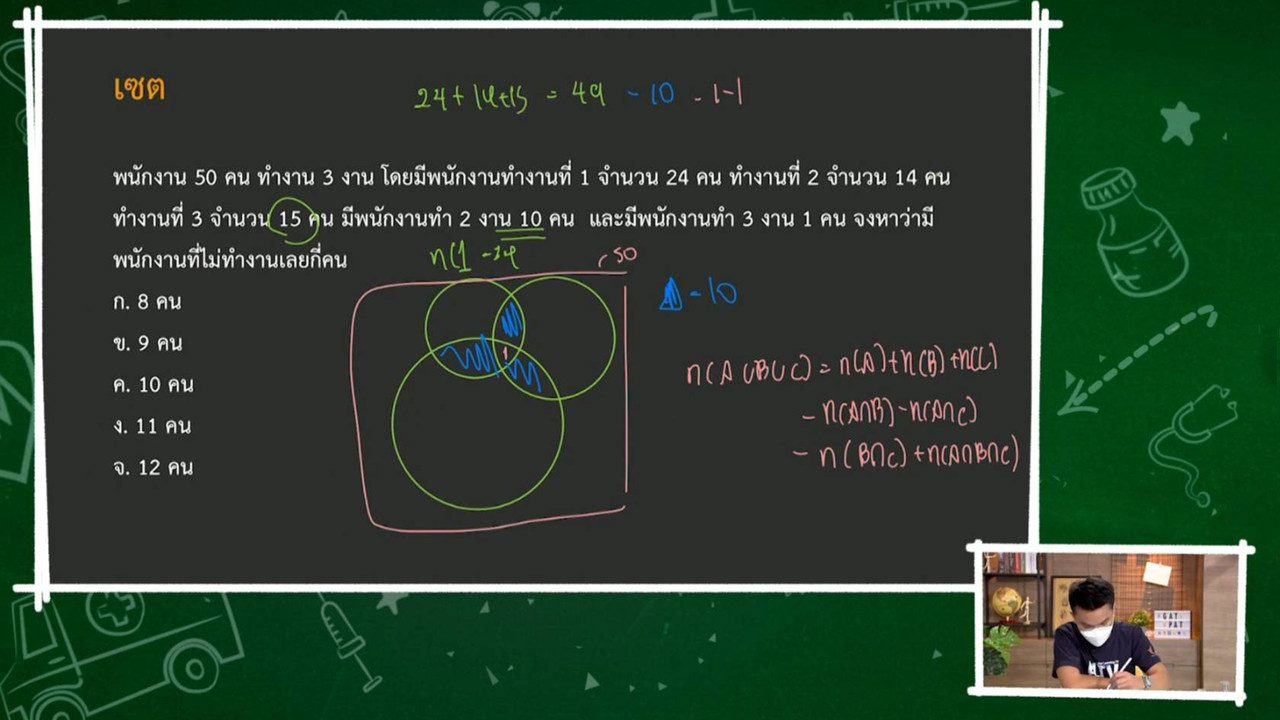 เซต
24+14+15 = 49 - 10 - 1-1
พนักงาน 50 คน ทำงาน 3 งาน โดยมีพนักงานทำงานที่ 1 จำนวน 24 คน ทำงานที่ 2 จำนวน 14 คน
ทำงานที่ 3 จำนวน 15 คน มีพนักงานทำ 2 งาน 10 คน และมีพนักงานทำ 3 งาน 1 คน จงหาว่ามี
พนักงานที่ไม่ทำงานเลยกี่คน
n(1
50
ก. 8 คน
ข. 9 คน
ค. 10 คน
ง. 11 คน
จ. 12 คน
= 10
1
n(A∪B∪C) = n(A)+n(B)+n(C)
- n(A∩B) - n(A∩C)
- n(B∩C) + n(A∩B∩C)
GAT
PAT